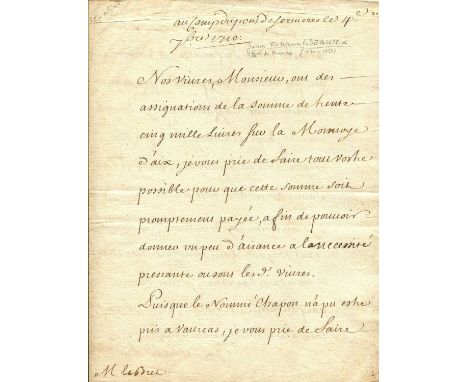 au Camp du pont de Servieres le 4e
7bre 1710.
James Fitzjames BERWICK
Mal de France (1670-1734)
Nos Vivres, Monsieur, ont des
assignations de la somme de trente
cinq mille Livres sur la Monnoye
d'aix, je vous prie de faire tout vostre
possible pour que cette somme soit
promptement payée, afin de pouvoir
donner un peu d'aisance a la necessité
pressante ou sont les d. Vivres.
Puisque le Nommé Chapon n'a pu estre
pris a Vaureas, je vous prie de faire
M. lebret